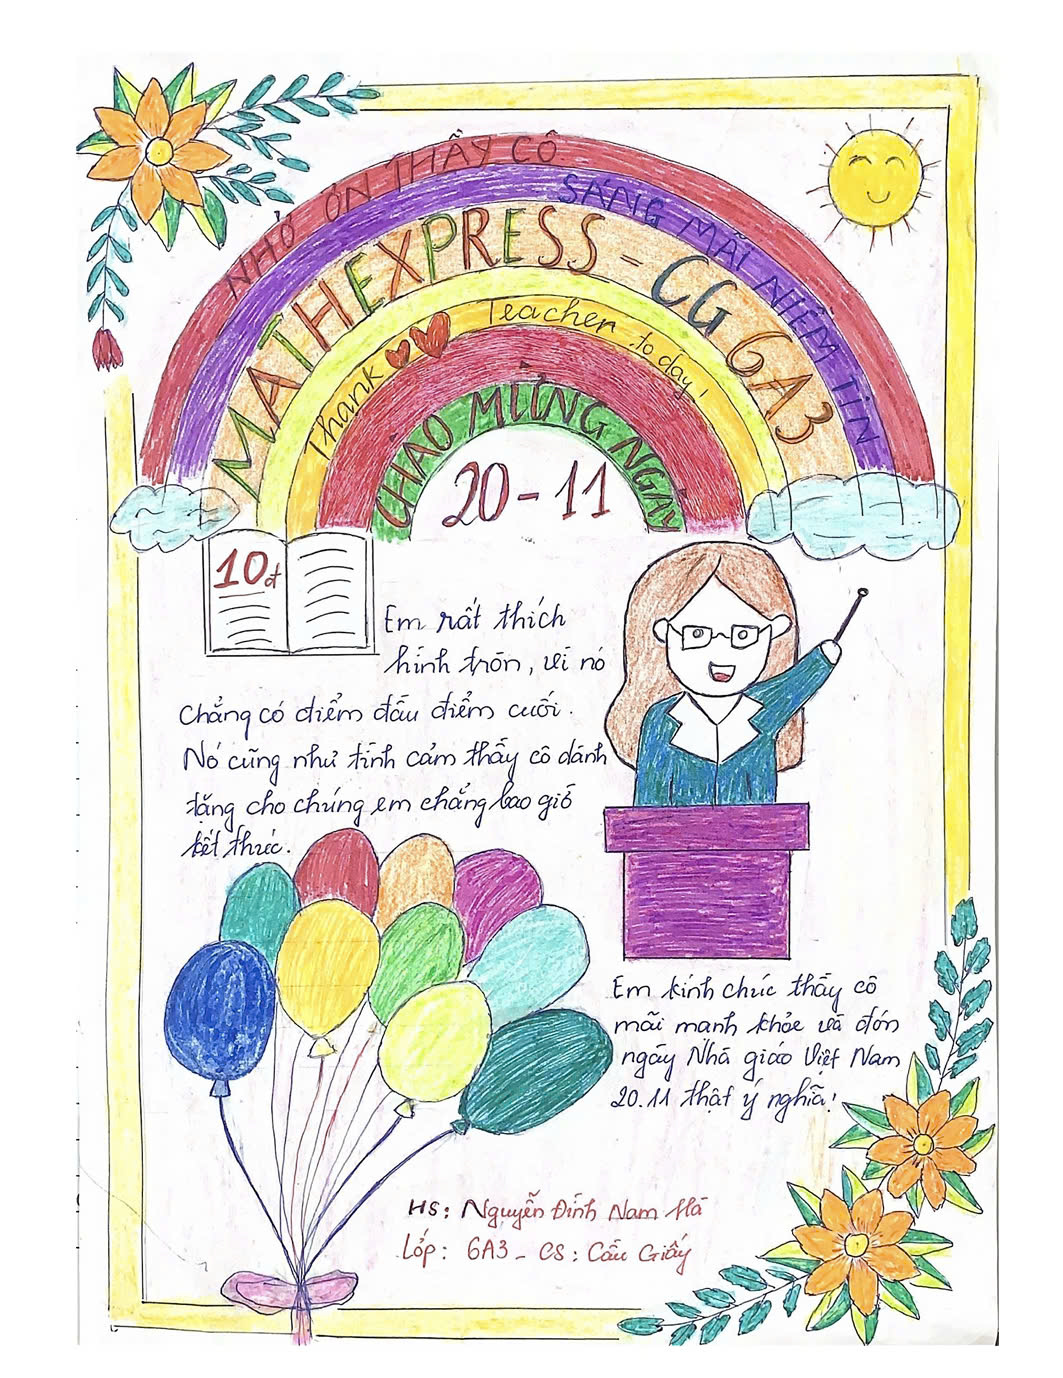 NHỚ ƠN THẦY CÔ
SÁNG MÃI NIỀM TIN
MATHEXPRESS - CG 6A3
Thank Teacher to day!
CHÀO MỪNG NGÀY
20-11
10đ
Em rất thích
hình tròn, vì nó
chẳng có điểm đầu điểm cuối.
Nó cũng như tình cảm thầy cô dành
tặng cho chúng em chẳng bao giờ
kết thúc.
Em kính chúc thầy cô
mãi mạnh khỏe và đón
ngày Nhà giáo Việt Nam
20.11 thật ý nghĩa!
HS: Nguyễn Đình Nam Hà
Lớp: 6A3 - CS: Cầu Giấy